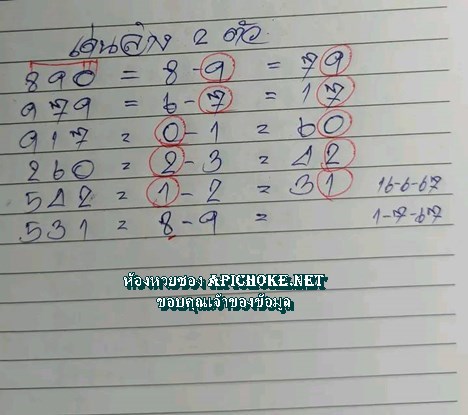 เด่นล่าง 2 ตัว
890 = 8-9 = 79
979 = 6-7 = 17
917 = 0-1 = 60
260 = 2-3 = 42
542 = 1-2 = 31 16-6-67
531 = 8-9 = 1-7-67
ห้องหวยซอง APICHOKE.NET
ขอบคุณเจ้าของข้อมูล